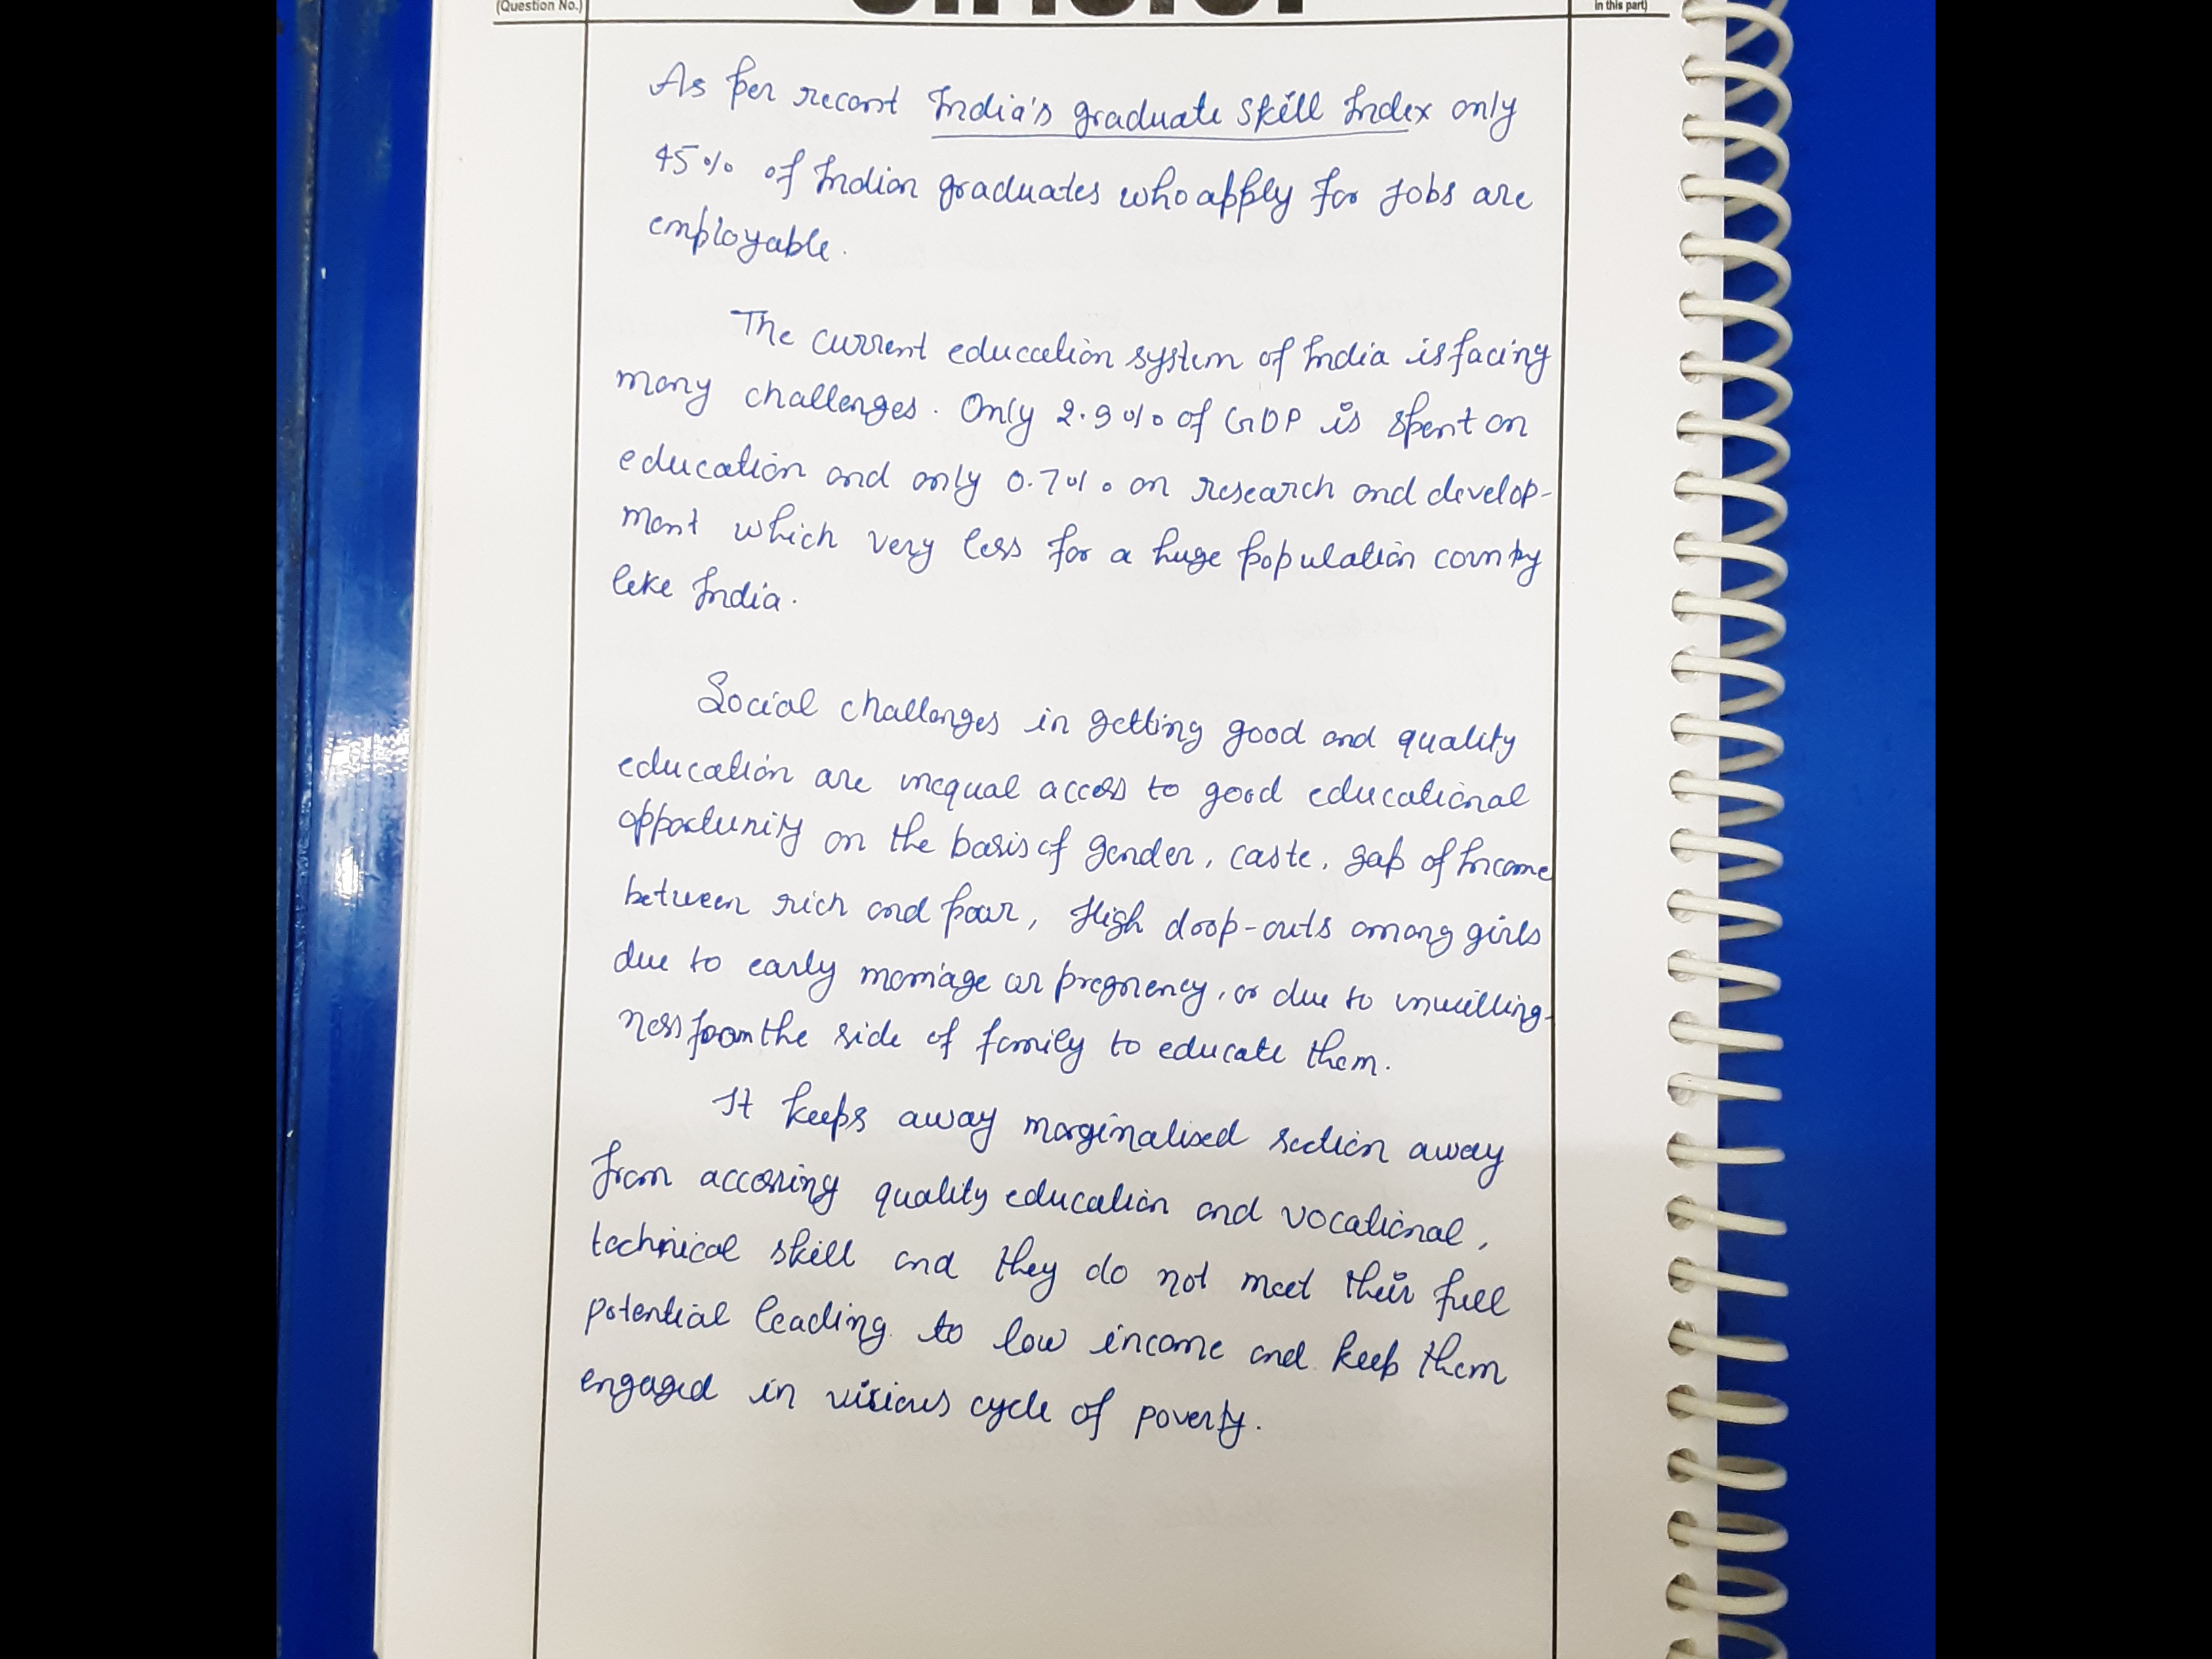 (Question No.)
in this part)
As per recent India's graduate skill Index only
45% of Indian graduates who apply for jobs are
employable.
The current education system of India is facing
many challenges. Only 2.9% of GDP is spent on
education and only 0.7% on research and develop-
ment which very less for a huge population country
like India.
Social challenges in getting good and quality
education are inequal access to good educational
opportunity on the basis of gender, caste, gap of Income
between rich and poor, High drop-outs among girls
due to early marriage or pregnency, or due to unwilling-
ness from the side of family to educate them.
It keeps away marginalised section away
from accessing quality education and vocational,
technical skill and they do not meet their full
potential leading to low income and keep them
engaged in visious cycle of poverty.